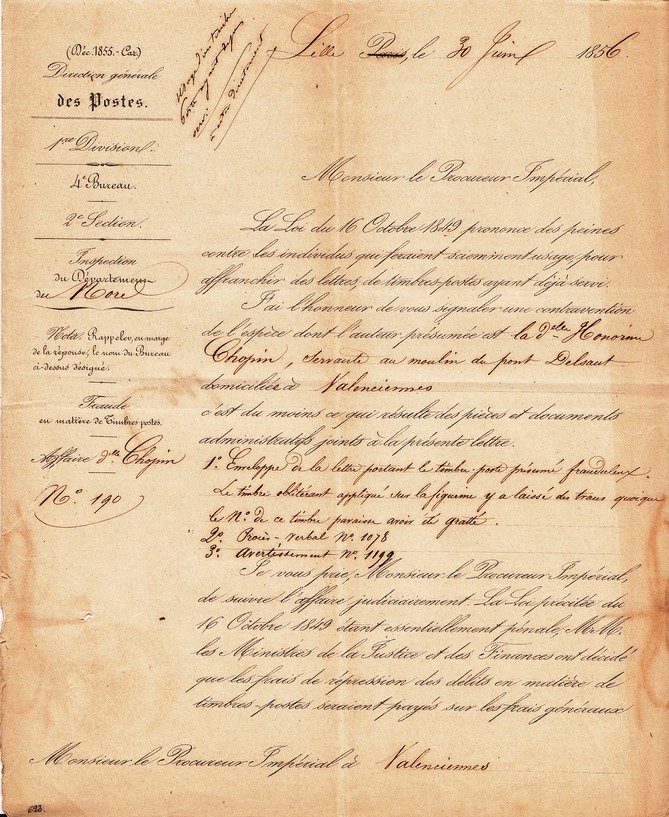 (Déc. 1855.-Car.)
Direction générale
des Postes.
1re Division.
4e Bureau.
2e Section.
Inspection
du Département
du Nord
Nota. Rappeler, en marge
de la réponse, le nom du Bureau
ci-dessus désigné.
Fraude
en matière de Timbres-postes.
Affaire dlle Chopin
No. 190
Lille Paris, le 30 Juin 1856.
Monsieur le Procureur Impérial,
La Loi du 16 Octobre 1849 prononce des peines
contre les individus qui feraient sciemment usage, pour
affranchir des lettres de timbres-postes ayant déjà servi.
J'ai l'honneur de vous signaler une contravention
de l'espèce dont l'auteur présumée est la delle Honorine
Chopin, servante au moulin du pont Delsaut
domiciliée à Valenciennes
c'est du moins ce qui résulte des pièces et documents
administratifs joints à la présente lettre.
1o. Enveloppe de la lettre portant le timbre-poste présumé frauduleux.
Le timbre oblitérant appliqué sur la figurine y a laissé des traces quoique
le No. de ce timbre paraisse avoir été gratté.
2o. Procès-verbal No. 1078
3o. Avertissement No. 1199
Je vous prie, Monsieur le Procureur Impérial,
de suivre l'affaire judiciairement. La Loi précitée du
16 Octobre 1849 étant essentiellement pénale, M.M.
les Ministres de la Justice et des Finances ont décidé
que les frais de répression des délits en matière de
timbres-postes seraient payés sur les frais généraux
Monsieur le Procureur Impérial à Valenciennes
623.